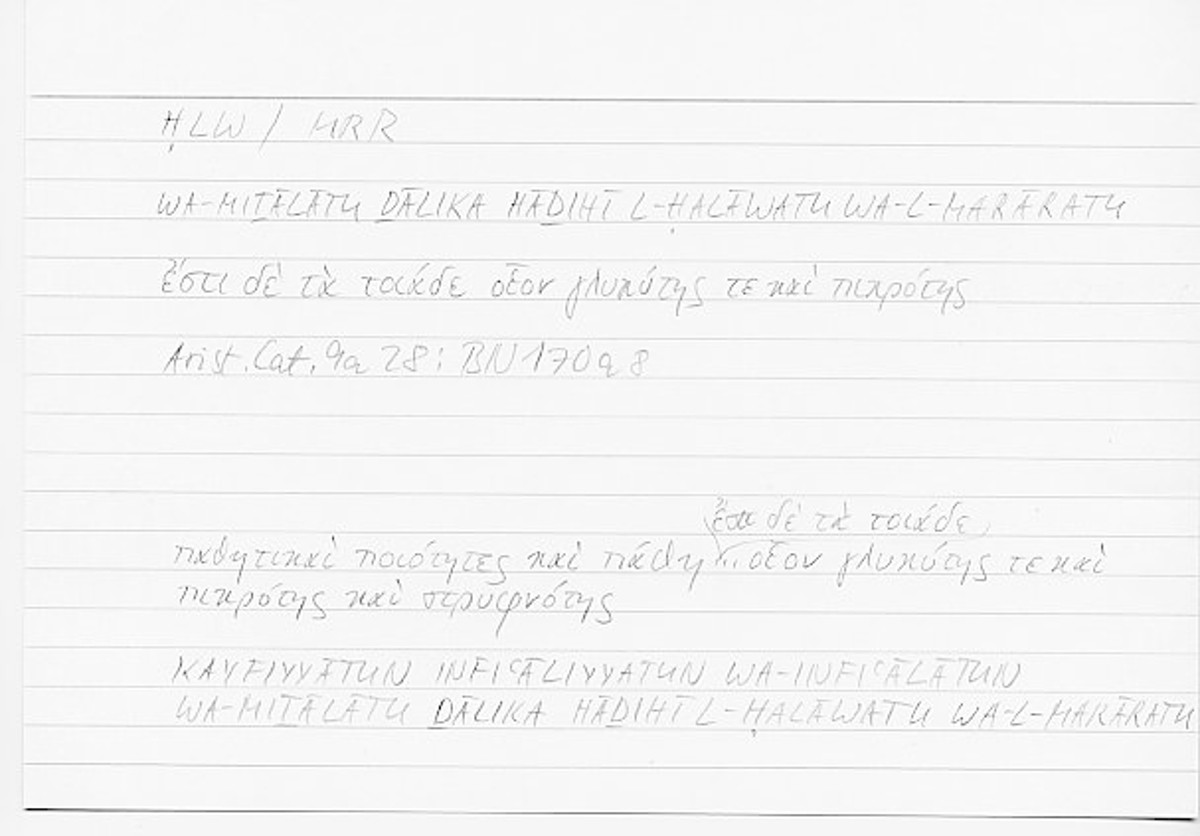 ḤLW / MRR
WA-MIṮĀLĀTU ḎĀLIKA HĀḎIHĪ L-ḤALĀWATU WA-L-MARĀRATU
ἔστι δὲ τὰ τοιάδε οἷον γλυκύτης τε καὶ πικρότης
Arist. Cat. 9a 28; BN 170a8
ἔστι δὲ τὰ τοιάδε
παθητικαὶ ποιότητες καὶ πάθη ... οἷον γλυκύτης τε καὶ
πικρότης καὶ στρυφνότης
KAYFIYYĀTUN INFIʿĀLIYYATUN WA-INFIʿĀLĀTUN
WA-MIṮĀLĀTU ḎĀLIKA HĀḎIHĪ L-ḤALĀWATU WA-L-MARĀRATU